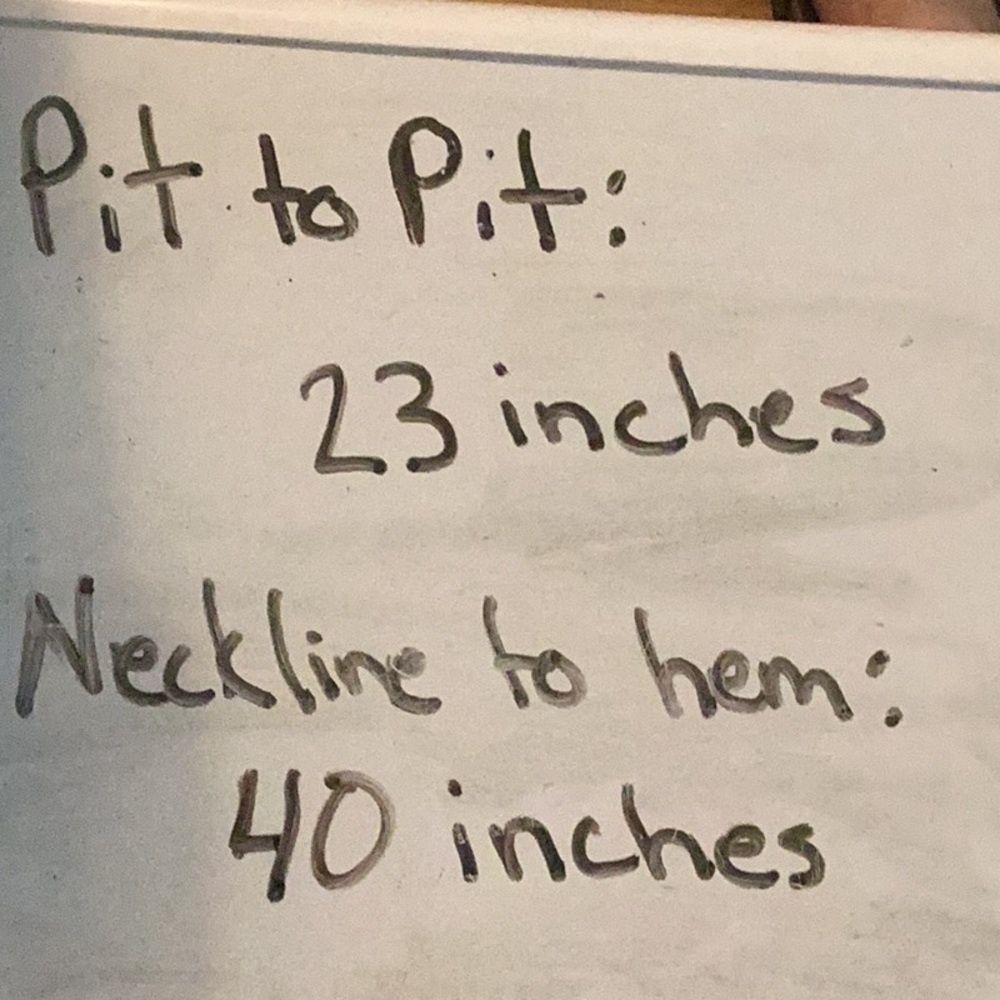 Pit to Pit:
23 inches
Neckline to hem:
40 inches